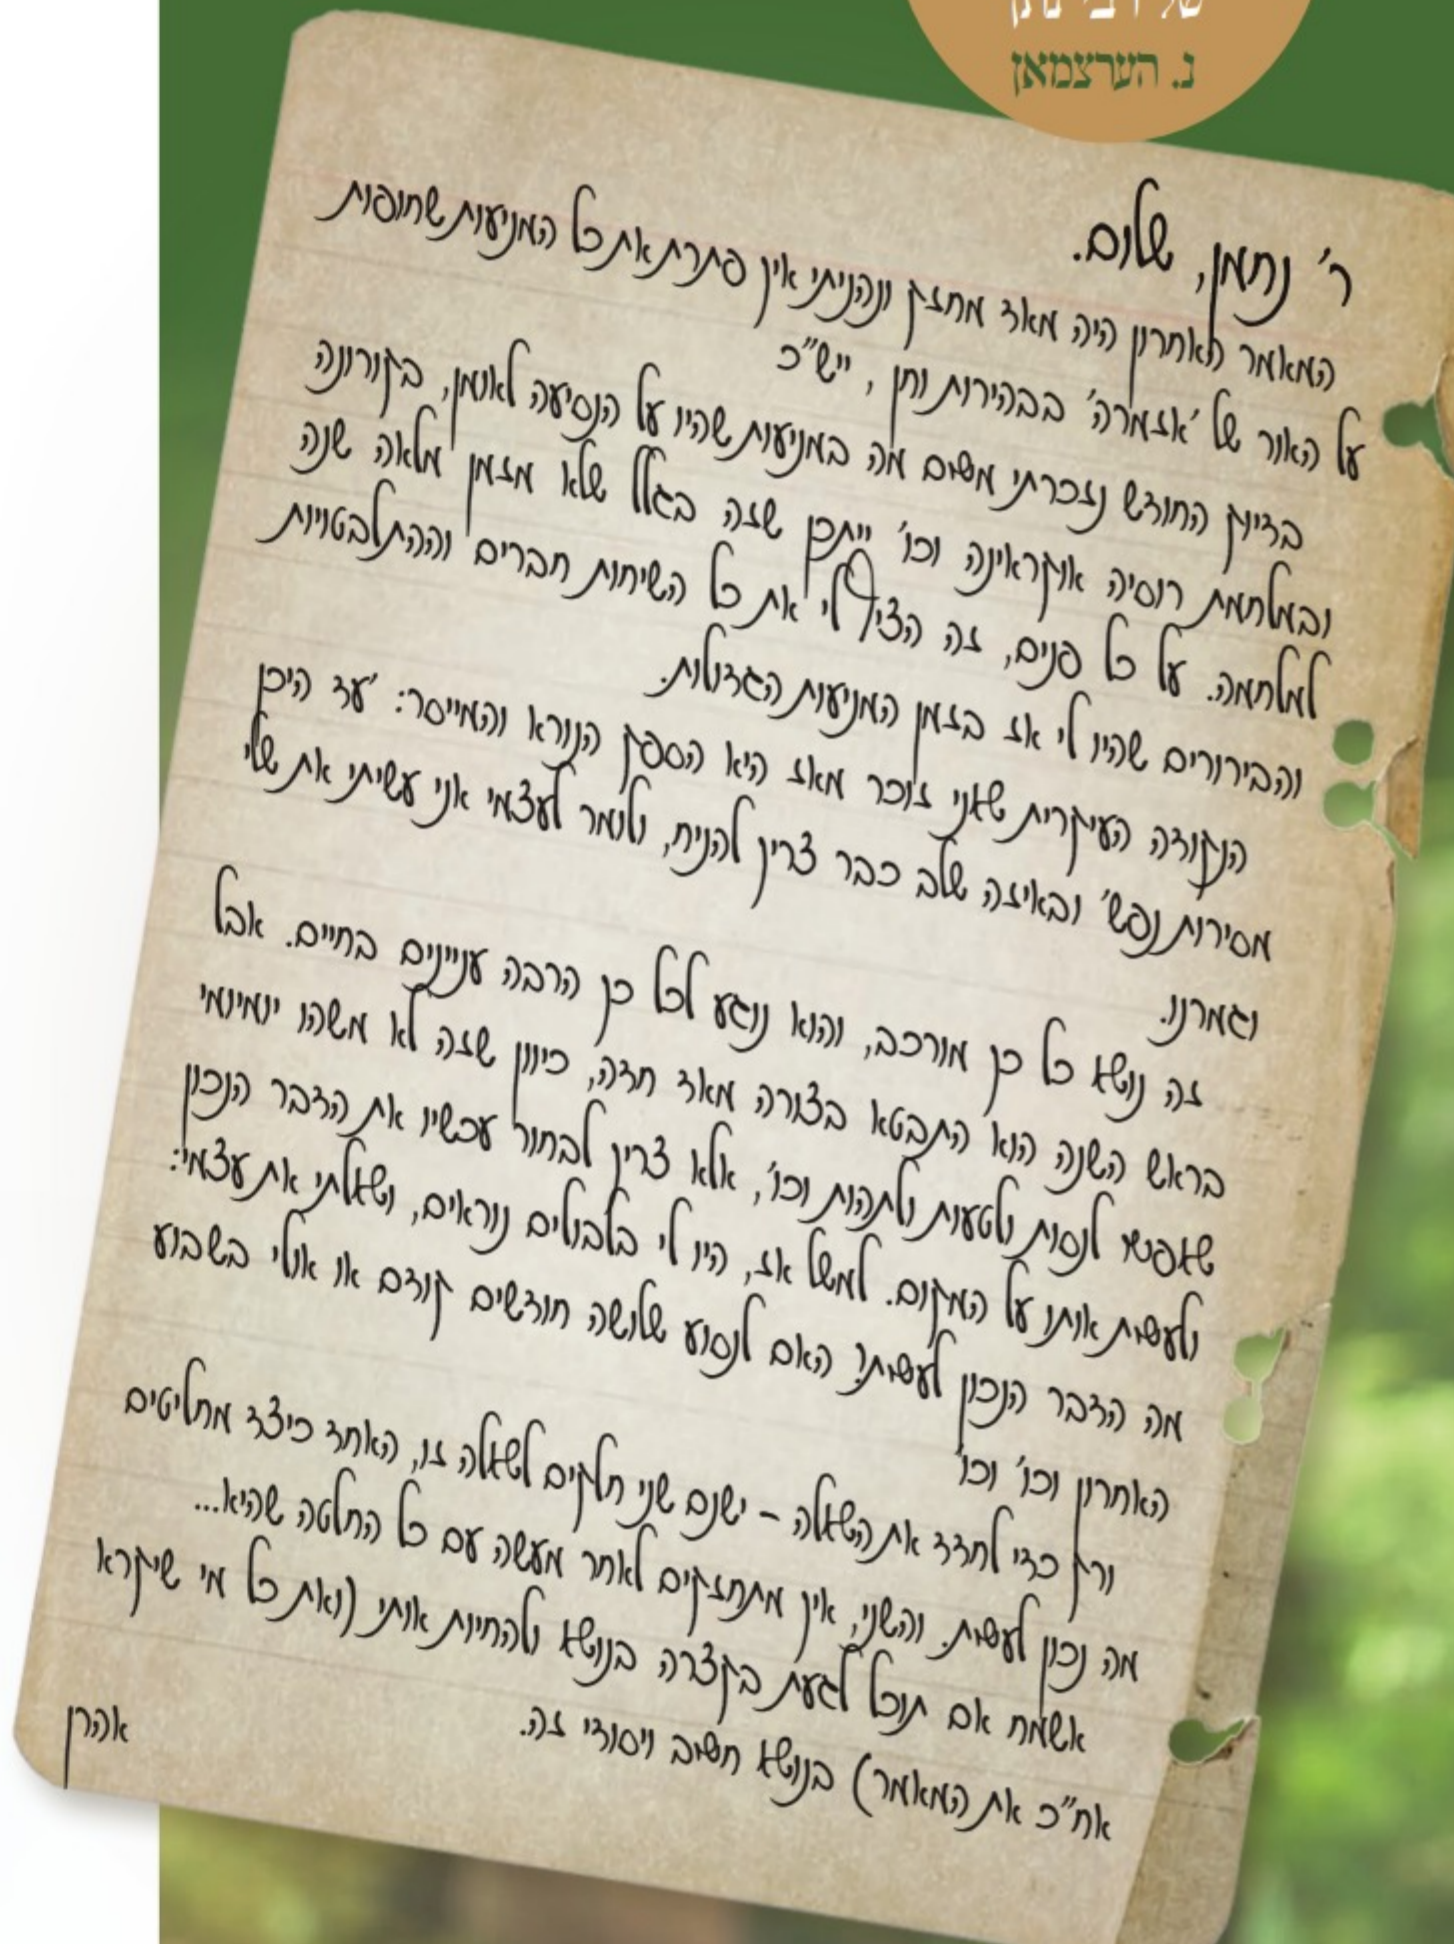 נ. הערצמאן
ר' נחמן, שלום.
המאמר האחרון היה מאד מחזק ונהניתי איך פתרת את כל המניעות שחופות
על האור של 'אזמרה' בבהירות וחן, יש"כ
בדיוק החודש נזכרתי משום מה במניעות שהיו על הנסיעה לאומן, בקורונה
ובמלחמת רוסיה אוקראינה וכו' ייתכן שזה בגלל שלא מזמן מלאה שנה
למלחמה. על כל פנים, זה הציף לי את כל השיחות חברים וההתלבטויות
והבירורים שהיו לי אז בזמן המניעות הגדולות.
הנקודה העיקרית שאני זוכר מאז היא הספק הנורא והמייסר: 'עד היכן
מסירות נפש' ובאיזה שלב כבר צריך להניח, ולומר לעצמי אני עשיתי את שלי
וגמרנו.
זה נושא כל כך מורכב, והוא נוגע לכל כך הרבה עניינים בחיים. אבל
בראש השנה הוא התבטא בצורה מאד חדה, כיוון שזה לא משהו יומיומי
שאפשר לנסות ולטעות ולתהות וכו', אלא צריך לבחור עכשיו את הדבר הנכון
ולעשות אותו על המקום. למשל אז, היו לי בלבולים נוראים, ושאלתי את עצמי:
מה הדבר הנכון לעשות? האם לנסוע שלושה חודשים קודם או אולי בשבוע
האחרון וכו' וכו'
ורק כדי לחדד את השאלה – ישנם שני חלקים לשאלה זו, האחד כיצד מחליטים
מה נכון לעשות. והשני, איך מתחזקים לאחר מעשה עם כל החלטה שהיא...
אשמח אם תוכל לגעת בקצרה בנושא ולהחיות אותי (ואת כל מי שיקרא
אח"כ את המאמר) בנושא חשוב ויסודי זה.
אהרן